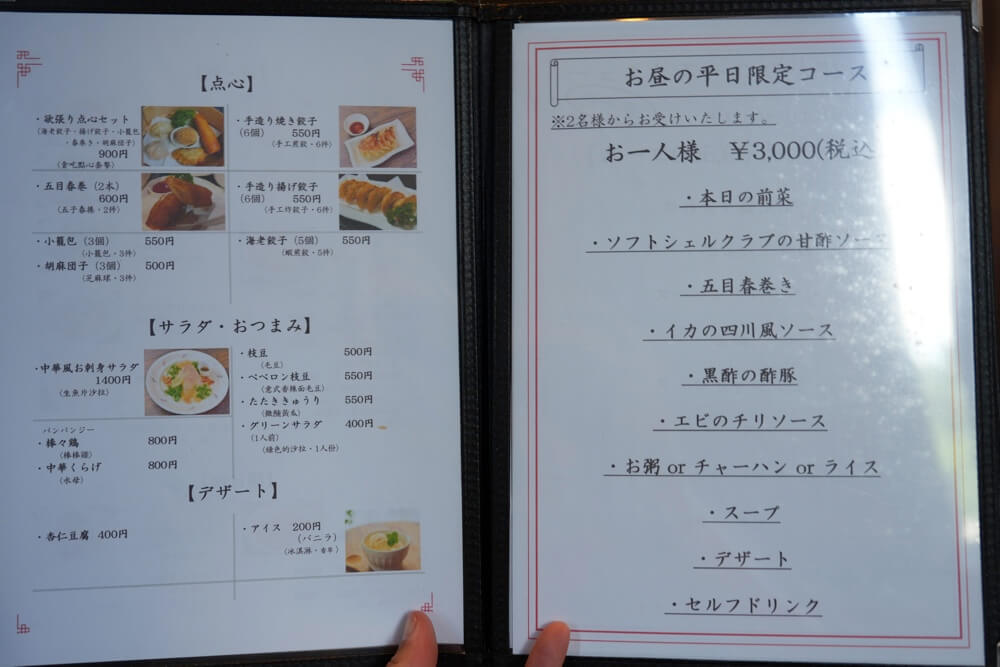 【点心】
・欲張り点心セット
(海老餃子・揚げ餃子・小籠包
・春巻き・胡麻団子)
900円
(貪吃點心套餐)
・五目春巻（2本）
600円
(五子春捲・2件)
・小籠包（3個） 550円
(小籠包・3件)
・胡麻団子（3個） 500円
(芝麻球・3件)
・手造り焼き餃子
(6個) 550円
(手工煎餃・6件)
・手造り揚げ餃子
(6個) 550円
(手工炸餃子・6件)
・海老餃子（5個） 550円
(蝦煎餃・5件)
【サラダ・おつまみ】
・中華風お刺身サラダ
1400円
(生魚片沙拉)
バンバンジー
・棒々鶏 800円
(棒棒雞)
・中華くらげ 800円
(水母)
・枝豆 500円
(毛豆)
・ペペロン枝豆 550円
(意式香辣面毛豆)
・たたききゅうり 550円
(微酸黃瓜)
・グリーンサラダ 400円
(1人前)
(綠色的沙拉・1人份)
【デザート】
・杏仁豆腐 400円
・アイス 200円
(バニラ)
(冰淇淋・香草)
お昼の平日限定コース
※2名様からお受けいたします。
お一人様 ￥3,000(税込
・本日の前菜
・ソフトシェルクラブの甘酢ソース
・五目春巻き
・イカの四川風ソース
・黒酢の酢豚
・エビのチリソース
・お粥 or チャーハン or ライス
・スープ
・デザート
・セルフドリンク